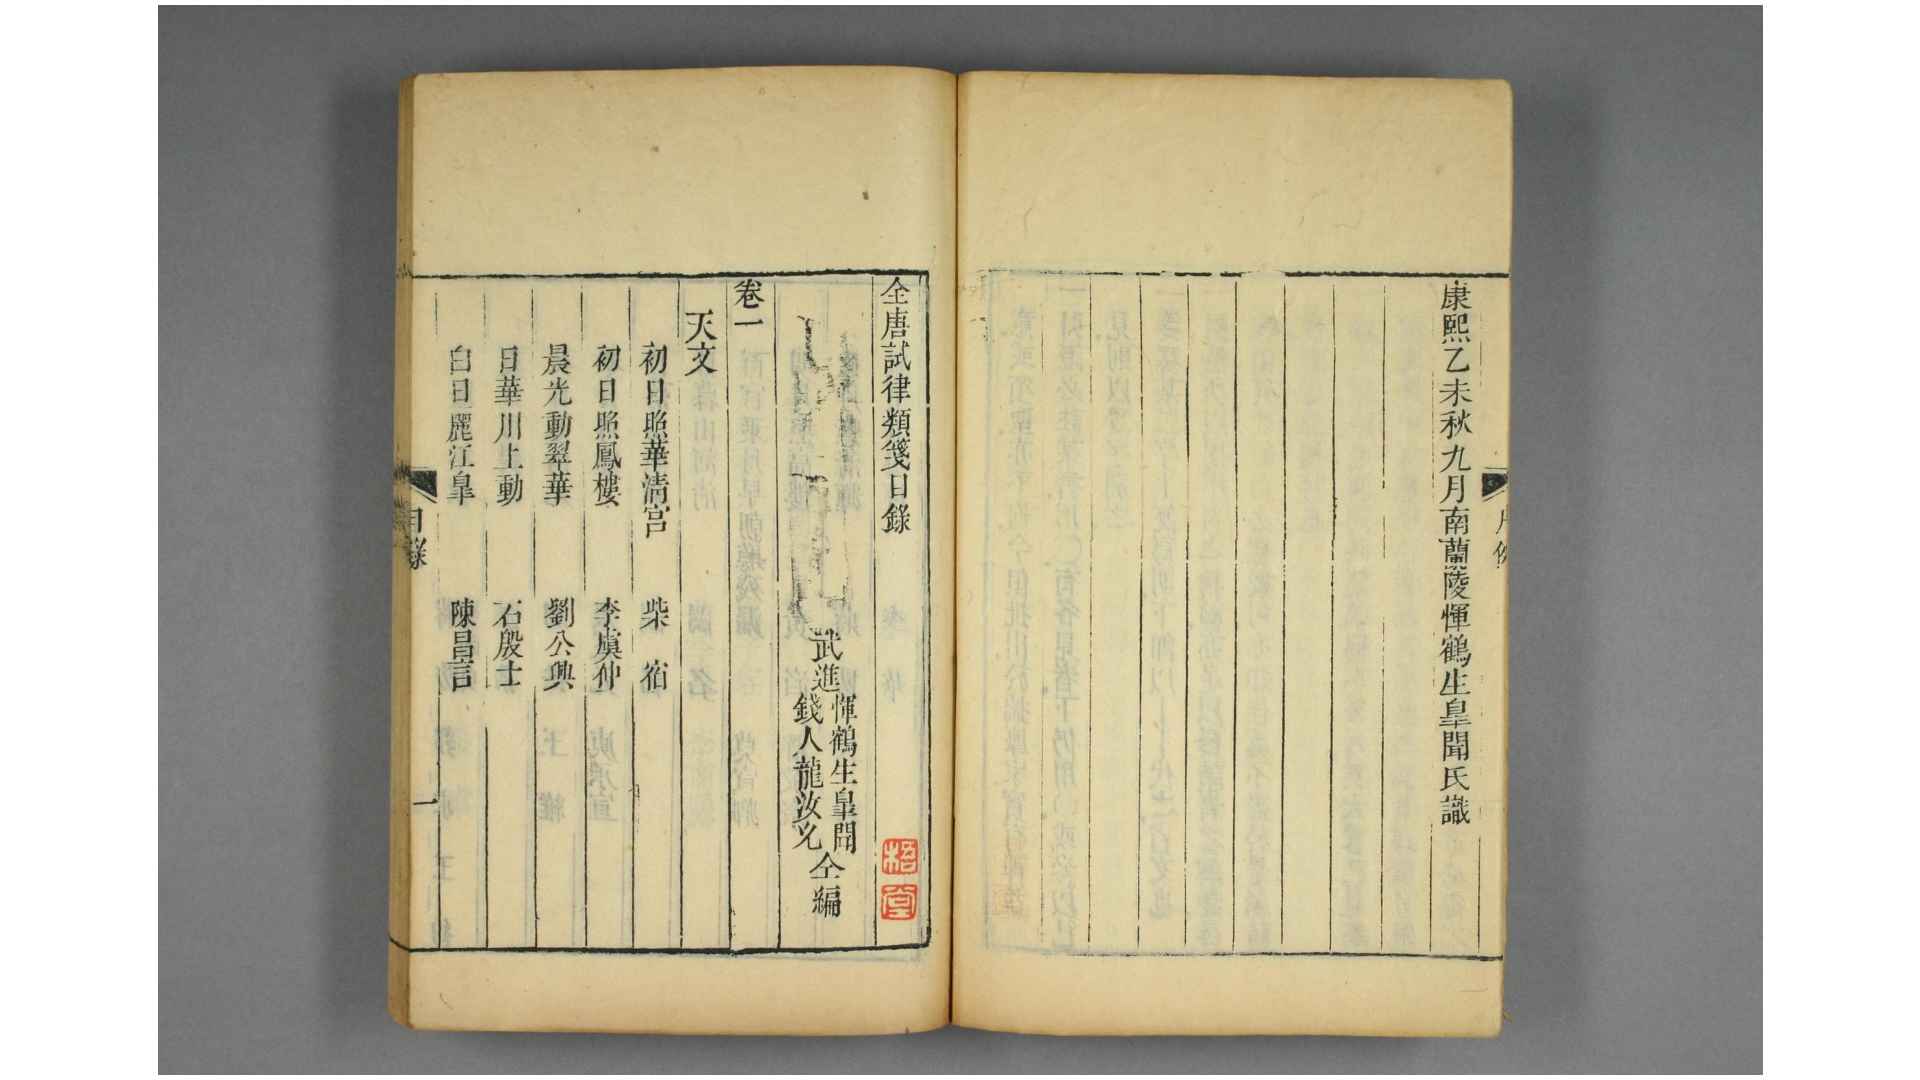 康熙乙未秋九月南蘭陵惲鶴生皐聞氏識
全唐試律類箋目錄
武進
惲鶴生皐聞
錢人龍汝允
仝編
卷一
天文
初日照華清宮 柴宿
初日照鳳樓 李虞仲
晨光動翠華 劉公興
日華川上動 石殷士
白日麗江皐 陳昌言
目錄
一
梧堂